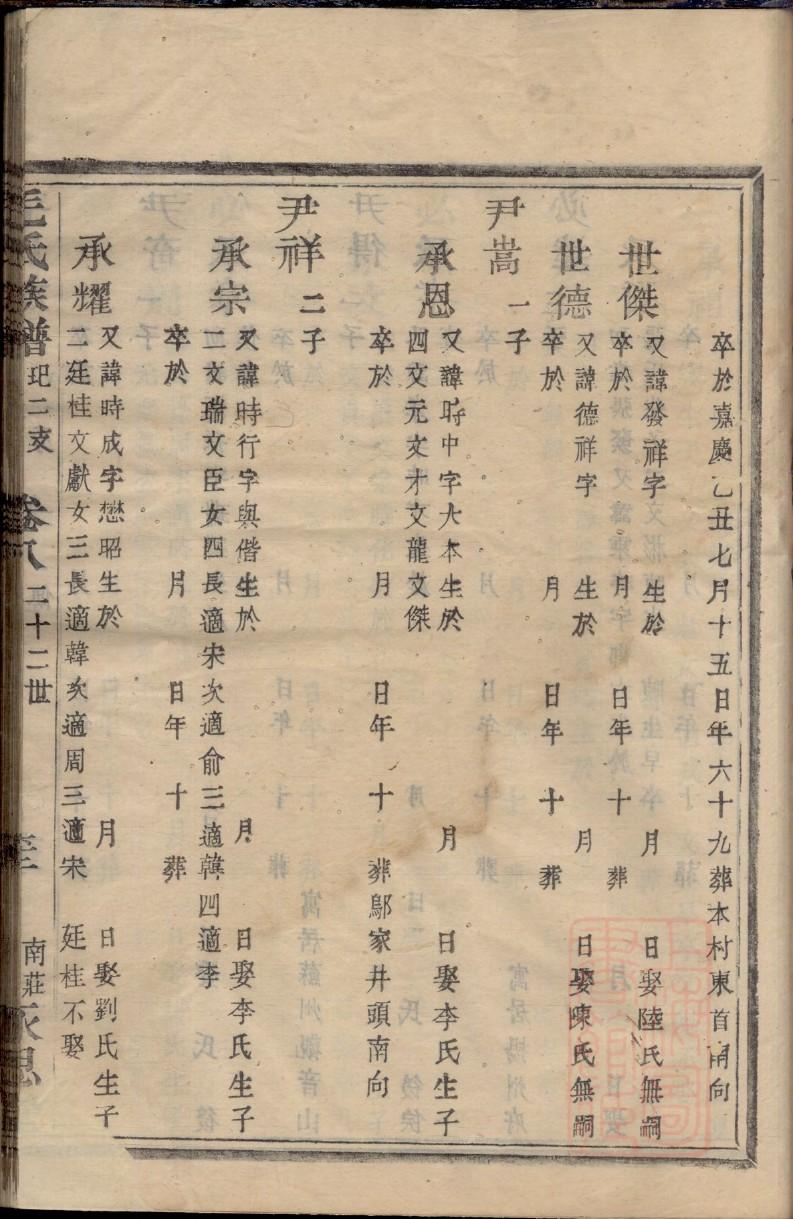 卒於嘉慶乙丑七月十五日年六十九葬本村東首南向
世傑 又諱發祥字 生於 月 日娶陸氏無嗣
卒於 月 日年 十 葬
世德 又諱德祥字 生於 月 日娶陳氏無嗣
卒於 月 日年 十 葬
尹嵩 一子
承恩 又諱時中字大本生於 月 日娶李氏生子
四文元文才文龍文傑
卒於 月 日年 十 葬鄔家井頭南向
尹祥 二子
承宗 又諱時行字與偕生於 月 日娶李氏生子
二文瑞文臣女四長適宋次適俞三適韓四適李
卒於 月 日年 十 葬
承耀 又諱時成字懋昭生於 月 日娶劉氏生子
二廷桂文獻女三長適韓次適周三適宋 廷桂不娶
氏族譜 玘二支 卷八 二十二世 南莊